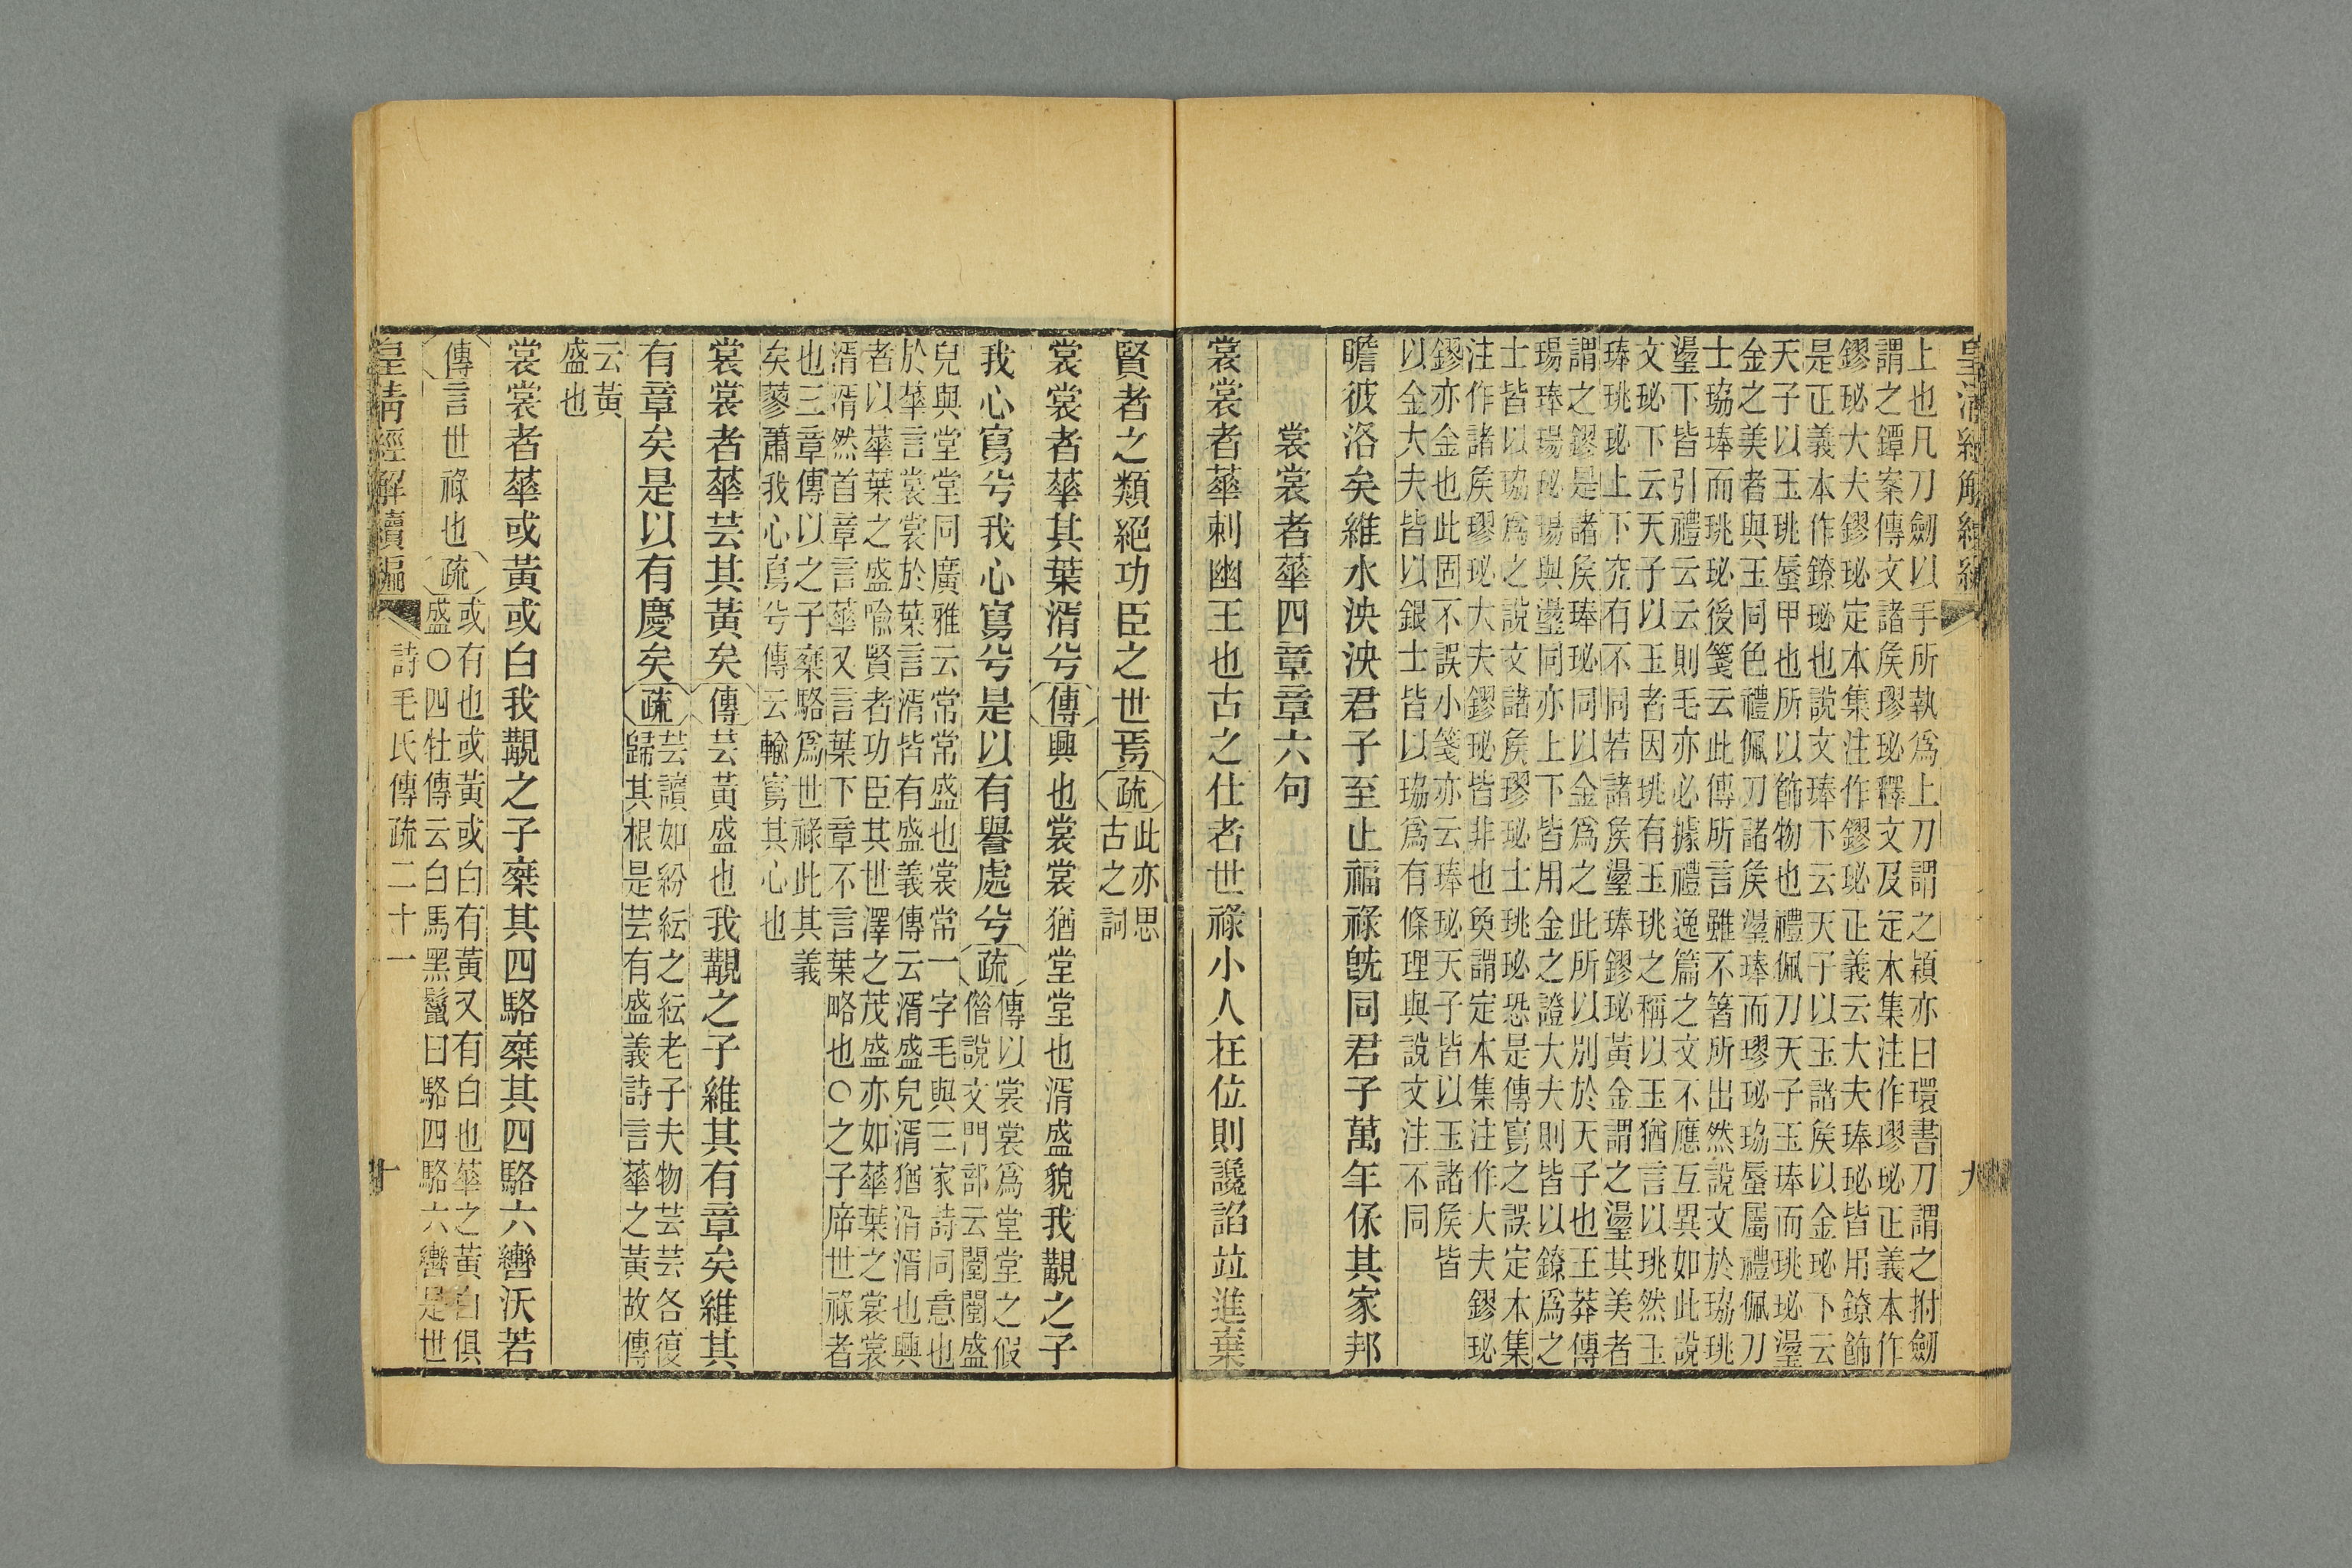 上也凡刀劒以手所執爲上刀謂之穎亦曰環書刀謂之拊劒
謂之鐔案傳文諸矦璆珌釋文及定本集注作璆珌正義本作
鏐珌大夫鏐珌定本集注作鏐珌正義云大夫琫珌皆用鐐飾
是正義本作鐐珌也說文琫下云天子以玉諸矦以金珌下云
天子以玉珧蜃甲也所以飾物也禮佩刀天子玉琫而珧珌璗
金之美者與玉同色禮佩刀諸矦璗琫而璆珌珕蜃屬禮佩刀
士珕琫而珧珌後箋云此傳所言雖不箸所出然說文於珕珧
璗下皆引禮云云則毛亦必據禮逸篇之文不應互異如此說
文珌下云天子以玉者因珧有玉珧之稱以玉猶言以珧然玉
琫珧珌上下究有不同若諸矦璗琫鏐珌黃金謂之璗其美者
謂之鏐是諸矦琫珌同以金爲之此所以別於天子也王莽傳
瑒琫瑒珌瑒與璗同亦上下皆用金之證大夫則皆以鐐爲之
士皆以珕爲之說文諸矦璆珌士珧珌恐是傳寫之誤定本集
注作諸矦璆珌大夫鏐珌皆非也奐謂定本集注作大夫鏐珌
鏐亦金也此固不誤小箋亦云琫珌天子皆以玉諸矦皆
以金大夫皆以銀士皆以珕爲有條理與說文注不同
瞻彼洛矣維水泱泱君子至止福祿旣同君子萬年保其家邦
裳裳者華四章章六句
裳裳者華刺幽王也古之仕者世祿小人在位則讒諂竝進棄
賢者之類絕功臣之世焉疏此亦思
古之詞
裳裳者華其葉湑兮傳興也裳裳猶堂堂也湑盛貌我覯之子
我心寫兮我心寫兮是以有譽處兮疏傳以裳裳爲堂堂之假
偕說文門部云闛闛盛
皃與堂堂同廣雅云常常盛也裳常一字毛與三家詩同意也
於華言裳裳於葉言湑皆有盛義傳云湑盛皃湑猶沿湑也興
者以華葉之盛喩賢者功臣其世澤之茂盛亦如華葉之裳裳
湑湑然首章言華又言葉下章不言葉略也○之子席世祿者
也三章傳以之子乘駱爲世祿此其義
矣蓼蕭我心寫兮傳云輸寫其心也
裳裳者華芸其黃矣傳芸黃盛也我覯之子維其有章矣維其
有章矣是以有慶矣疏芸讀如紛紜之紜老子夫物芸芸各復
歸其根是芸有盛義詩言華之黃故傳
云黃
盛也
裳裳者華或黃或白我覯之子乘其四駱乘其四駱六轡沃若
傳言世祿也疏或有也或黃或白有黃又有白也華之黃白俱
盛○四牡傳云白馬黑鬣曰駱四駱六轡是世
皇清經解續編
詩毛氏傳疏二十一
十
九